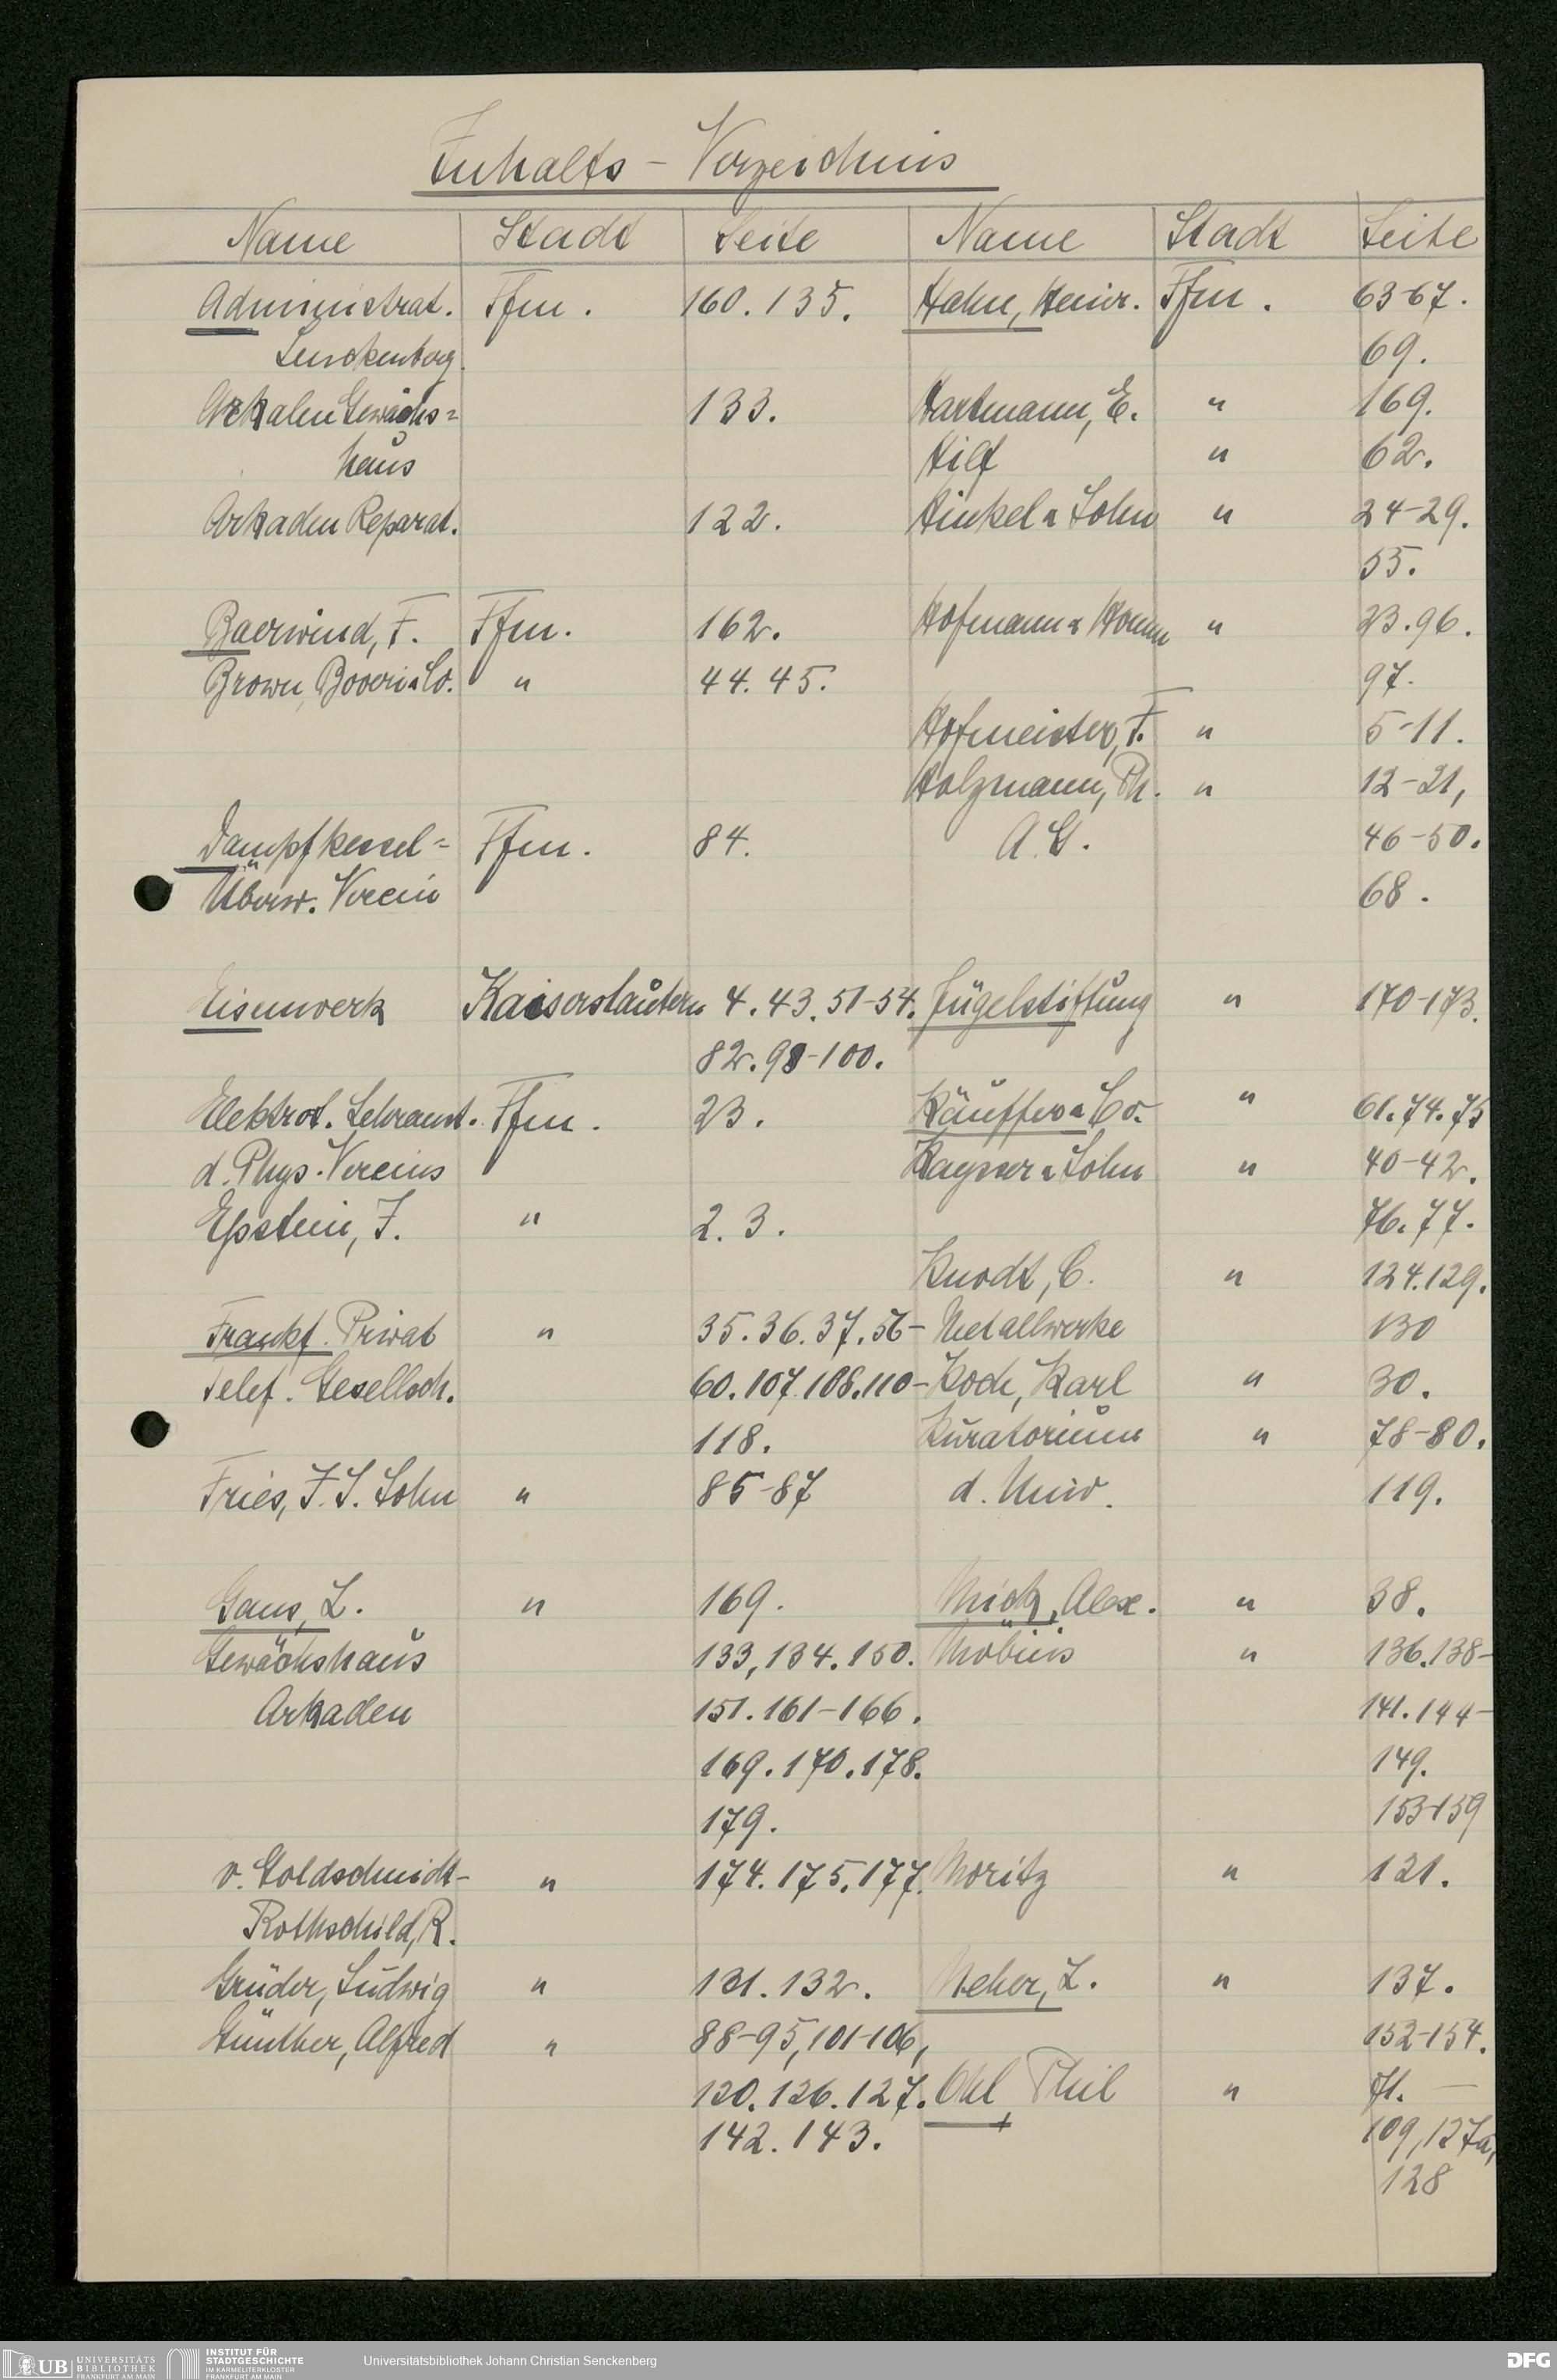 Inhalts-Verzeichnis
Name Stadt Seite Name Stadt Seite
Administrat. Ffm. 160. 135. Hahn, Heinr. Ffm. 63-67.
Senckenberg. 69.
Arkaden Gewächs= 133. Hartmann, E. " 169.
haus Hilf " 62.
Arkaden Reparat. 122. Hinkel & Sohn " 24-29.
55.
Baerwind, F. Ffm. 162. Hofmann & Homm " 23. 96.
Brown, Boveri & Co. " 44. 45. 97.
Hofmeister, F. " 5-11.
Holzmann, Ph. " 12-21,
Dampfkessel= Ffm. 84. A.G. 46-50.
Überw. Verein 68.
Eisenwerk Kaiserslautern 4. 43. 51-54. Jügelstiftung " 170-173.
82. 98-100.
Elektrot. Lehranst. Ffm. 23. Käuffer & Co. " 61. 74. 75
d. Phys. Vereins Kayser & Sohn " 40-42.
Epstein, J. " 2. 3. 76. 77.
Knodt, C. " 124. 129.
Frankf. Privat " 35. 36. 37. 56- Metallwerke 130
Telef. Gesellsch. 60. 107. 108. 110- Koch, Karl " 30.
118. Kuratorium " 78-80.
Fries, J. S. Sohn " 85-87 d. Univ. 119.
Gans, L. " 169. Mick, Alex. " 38.
Gewächshaus 133, 134. 150. Möbius " 136. 138-
Arkaden 151. 161-166. 141. 144-
169. 170. 178. 149.
179. 153-159
v. Goldschmidt- " 174. 175. 177. Moritz " 121.
Rothschild, R.
Grüder, Ludwig " 131. 132. Neher, L. " 137.
Günther, Alfred " 88-95, 101-106, 152-154.
120. 126. 127. Ohl, Phil " 71. —
142. 143. 109, 127a,
128
UB UNIVERSITÄTS
BIBLIOTHEK
FRANKFURT AM MAIN
INSTITUT FÜR
STADTGESCHICHTE
IM KARMELITERKLOSTER
FRANKFURT AM MAIN
Universitätsbibliothek Johann Christian Senckenberg
DFG